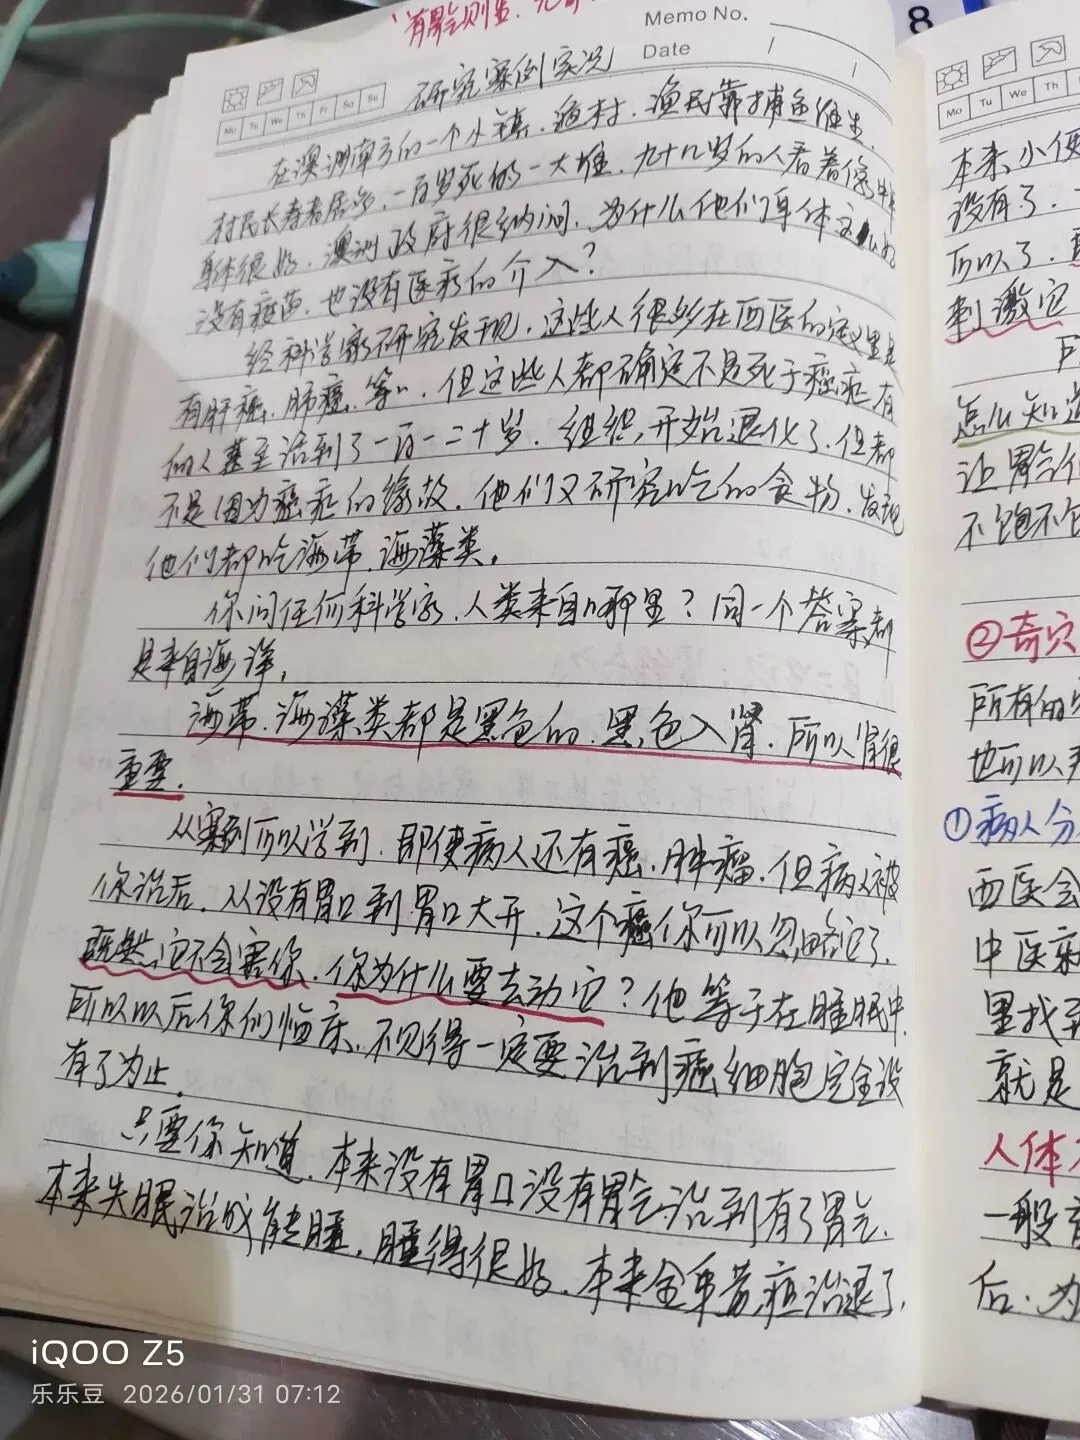 "有胃气则生,无胃
Memo No.
Date / /
Mo Tu We Th Fr Sa Su
研究案例实况
在澳洲南方的一个小镇、渔村,渔民靠捕鱼维生,
村民长寿者居多,一百岁死的一大堆,九十几岁的人看着像
身体很好,澳洲政府很纳闷,为什么他们身体这么好
没有疫苗,也没有医疗的介入?
经科学家研究发现,这些人很多在西医的定义里是
有肝癌、肺癌、等,但这些人都确定不是死于癌症,有
的人甚至活到了一百一二十岁,组织开始退化了,但都
不是因为癌症的缘故,他们又研究吃的食物,发现
他们都吃海带、海藻类。
你问任何科学家,人类来自哪里?同一个答案都
是来自海洋。
海带、海藻类都是黑色的,黑色入肾,所以肾很
重要。
从案例可以学到,即使病人还有癌、肿瘤,但病人被
你治后,从没有胃口到胃口大开,这个癌你可以忽略它了,
既然它不会害你,你为什么要去动它?他等于在睡眠中,
所以以后你们临床,不见得一定要治到癌细胞完全没
有了为止。
只要你知道,本来没有胃口没有胃气治到有了胃气,
本来失眠治成能睡,睡得很好,本来全身苦疸治退了,
8
Mo Tu We Th
本来小便
没有了,
可以了,
刺激它
怎么知道
让胃气
不饱不
②奇穴
所有的
也可以
①病人分
西医会
中医
里找到
就是
人体
一般
后,为
iQOO Z5
乐乐豆 2026/01/31 07:12